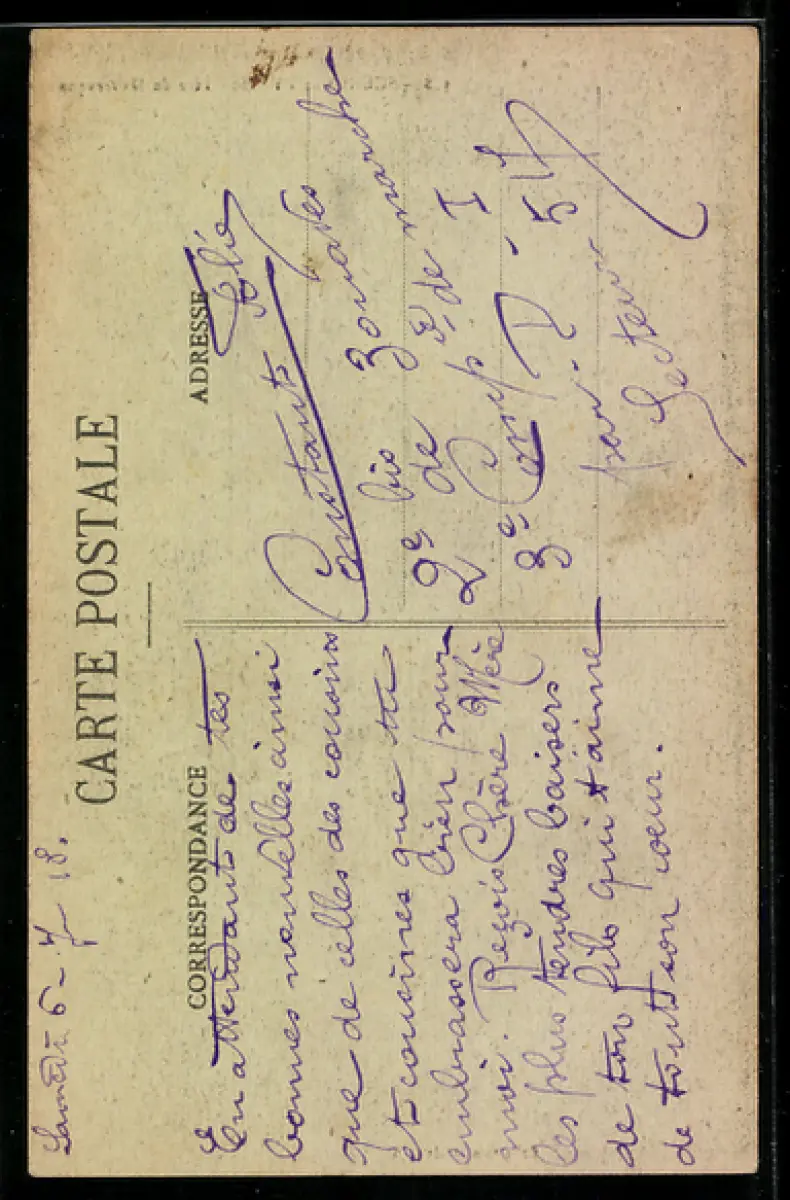 Samedi 6-7 18.
CARTE POSTALE
CORRESPONDANCE
En attendant de tes
bonnes nouvelles ainsi
que de celles des cousins
et cousines que tu
embrassera bien pour
moi. Reçois Chère Mère
les plus tendres baisers
de ton fils qui t'aime
de tout son coeur.
ADRESSE
Constant
2e bis Zouaves
2e de de marche
3e Comp. de I
par
Secteur